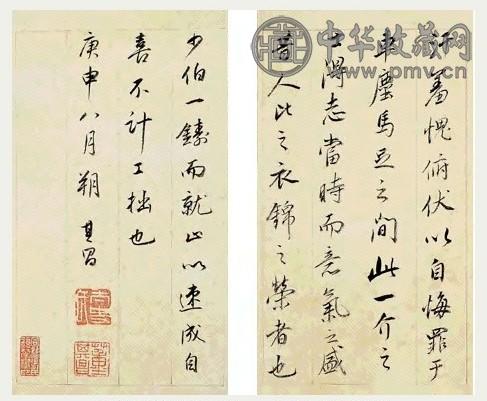 中华收藏网
www.pmv.cn
汗羞愧俯伏以自悔罪于
車塵馬足之間此一介之
士得志當時而意氣之盛
昔人比之衣錦之榮者也
少伯一鑄而就止以速成自
喜不計工拙也
庚申八月朔 其昌